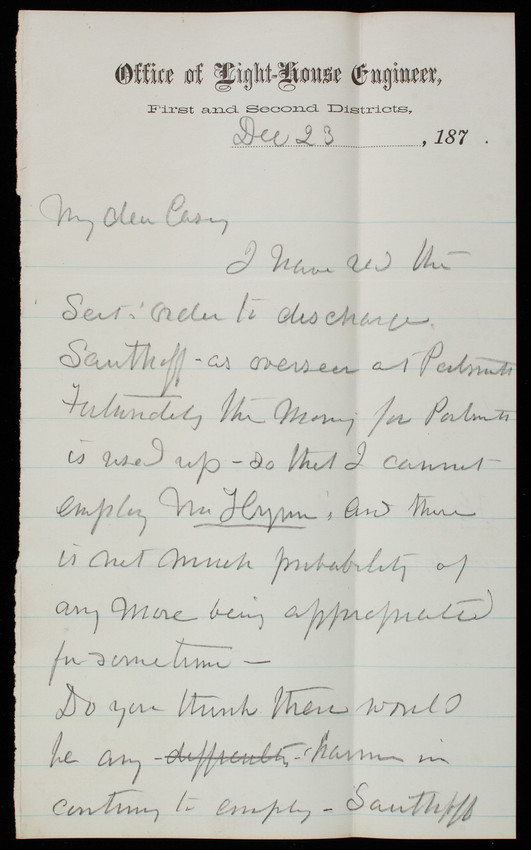 Office of Light-House Engineer,
First and Second Districts,
Dec 23, 187 .
My dear Casey
I have recd the
Sect's order to discharge
Southoff - as overseer at Portsmth
Fortunately the money for Portsmth
is used up - so that I cannot
employ Mr Flynn, and there
is not much probability of
any more being appropriated
for sometime -
Do you think there would
be any - difficulty - harm in
continuing to employ - Southoff